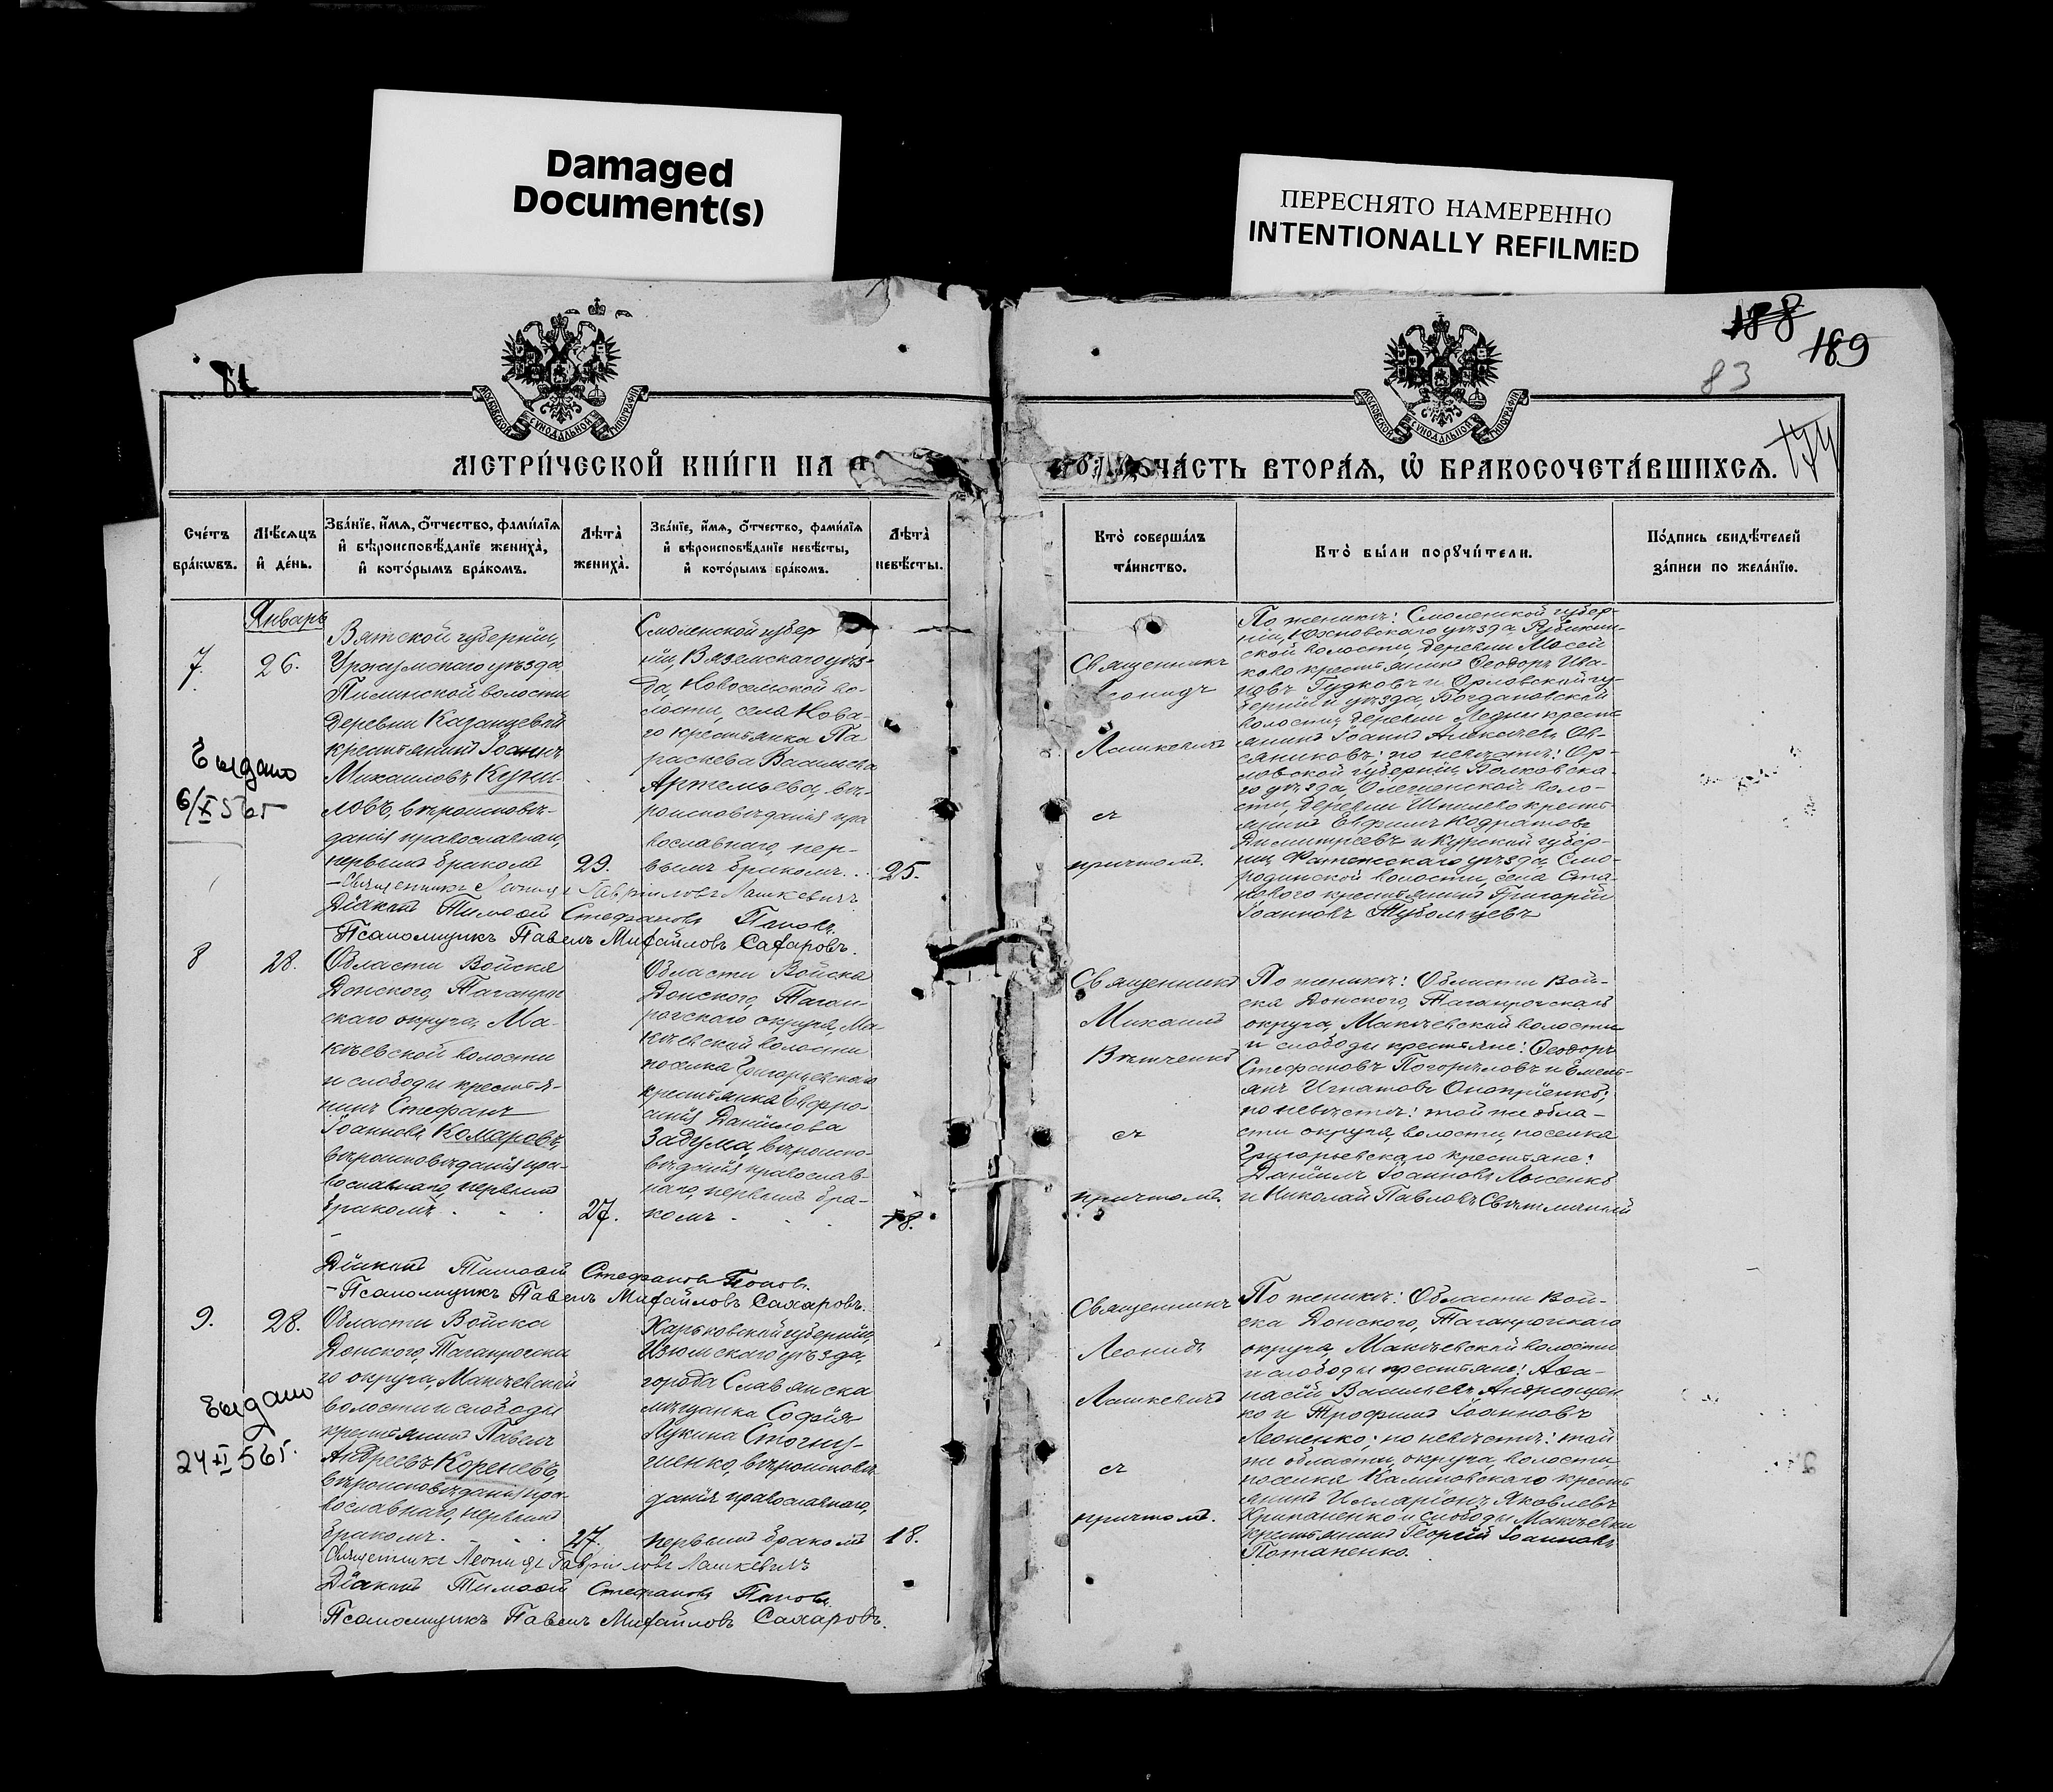 Damaged
Document(s)
ПЕРЕСНЯТО НАМЕРЕННО
INTENTIONALLY REFILMED
188
189
83
174
МОСКОВСКОЙ СУНОДАЛЬНОЙ ТИПОГРАФІИ
МОСКОВСКОЙ СУНОДАЛЬНОЙ ТИПОГРАФІИ
МЕТРИ́ЧЕСКОЙ КНИ́ГИ НА
ЧА́СТЬ ВТОРА́Я, Ѡ БРАКОСОЧЕТА́ВШИХСЯ.
Сче́тъ бра́кѡвъ.
Мѣ́сяцъ и де́нь.
Зва́нїе, и́мя, о́тчество, фами́лїя и вѣроисповѣ́данїе жениха̀, и кото́рымъ бра́комъ.
Лѣта̀ жениха̀.
Зва́нїе, и́мя, о́тчество, фами́лїя и вѣроисповѣ́данїе невѣ́сты, и кото́рымъ бра́комъ.
Лѣта̀ невѣ́сты.
Кто̀ соверша́лъ та́инство.
Кто̀ бы́ли порꙋчи́тели.
По́дпись свидѣ́телей за́писи по жела́нїю.
Январь
7.
26.
Вятской губерніи,
Уржумскаго уѣзда
Пилинской волости
деревни Казанцевой
крестьянинъ Іоаннъ
Михаиловъ
ловъ, вѣроисповѣ-
данія православнаго,
первымъ бракомъ
29.
Смоленской губер
ніи, Вяземскаго уѣз-
да, Новосельской во-
лости, села Нова-
го крестьянка Па
раскева Васильева
Артемьева, вѣ-
роисповѣданія пра
вославнаго, пер-
вымъ бракомъ.
25.
Священникъ
Леонидъ
Лашкевичъ
съ
причтомъ.
По женихѣ: Смоленской губер-
ніи, Юхновскаго уѣзда, Рубихин-
ской волости, деревни Мосей
ково крестьянинъ Ѳеодоръ Ива-
новъ Гудковъ и Орловской гу-
берніи и уѣзда, Богдановской
волости, деревни Ледни кресть
янинъ Іоаннъ Алексѣевъ Ов-
сяниковъ; по невѣстѣ: Ор-
ловской губерніи, Болховска-
го уѣзда, волости, деревни Шпилево кресть-
янинъ Евфимъ Кодратовъ
Димитріевъ и Курской губер-
ніи, Фатежскаго уѣзда, Смо-
родинской волости, села Ста-
новаго крестьянинъ Григорій
Іоанновъ Тубольцевъ
Выдано
6/X 565
Священникъ Леонидъ Гавріиловъ Лашкевичъ
Діаконъ Тимоѳей Стефановъ Поповъ.
Псаломщикъ Павелъ Михаиловъ Сахаровъ.
8
28.
Области Войска
Донского, Таганрог
скаго округа, Ма-
кѣевской волости
и слободы крестья-
нинъ Стефанъ
Іоанновъ Комаровъ,
вѣроисповѣданія пра-
вославнаго, первымъ
бракомъ.
27.
Области Войска
Донского, Таган-
рогскаго округа, Ма-
кѣевской волости
поселка Григорьевскаго
крестьянка Евфро-
синія Даніилова
Задума, вѣроиспо-
вѣданія православ-
наго, первымъ бра-
комъ.
18.
Священникъ
Михаилъ
Вѣтченко
съ
причтомъ.
По женихѣ: Области Вой-
ска Донского, Таганрогскаго
округа, Макѣевской волости
и слободы крестьяне: Ѳеодоръ
Стефановъ Погорѣловъ и Емель-
янъ Игнатовъ Онопріенко;
по невѣстѣ: той же обла-
сти округа, волости, поселка
Григорьевскаго крестьяне:
Даніилъ Іоанновъ Лысенко
и Николай Павловъ Свѣтличный
Діаконъ Тимоѳей Стефановъ Поповъ.
Псаломщикъ Павелъ Михаиловъ Сахаровъ.
9.
28.
Области Войска
Донского, Таганрогска
го округа, Макѣевской
волости и слободы
крестьянинъ Павелъ
Андреевъ Кореневъ,
вѣроисповѣданія пра-
вославнаго, первымъ
бракомъ.
27.
Харьковской губерніи,
Изюмскаго уѣзда,
города Славянска
мѣщанка Софія
Лукина Стогну-
шенко, вѣроисповѣ-
данія православнаго,
первымъ бракомъ
18.
Священникъ
Леонидъ
Лашкевичъ
съ
причтомъ.
По женихѣ: Области Вой-
ска Донского, Таганрогскаго
округа, Макѣевской волости
и слободы крестьяне: Аѳа-
насій Васильевъ Андрющен
ко и Трофимъ Іоанновъ
Леоненко; по невѣстѣ: той
же области, округа, волости,
поселка Калиновскаго кресть
янинъ Илларіонъ Яковлевъ
Крипаненко и слободы Макѣевки
крестьянинъ Георгій Іоанновъ
Потаненко.
Выдано
24 XI 565.
Священникъ Леонидъ Гавріиловъ Лашкевичъ
Діаконъ Тимоѳей Стефановъ Поповъ.
Псаломщикъ Павелъ Михаиловъ Сахаровъ.